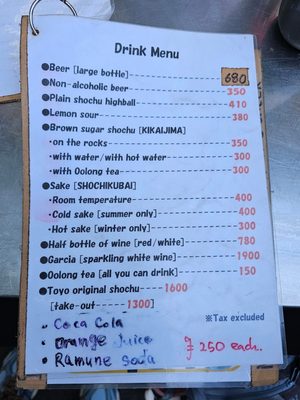 Drink Menu
●Beer [large bottle]---------------- 680
●Non-alcoholic beer---------------- 350
●Plain shochu highball-------------- 410
●Lemon sour------------------------ 380
●Brown sugar shochu [KIKAIJIMA]
・on the rocks---------------------- 350
・with water/with hot water--------- 300
・with Oolong tea------------------- 300
●Sake [SHOCHIKUBAI]
・Room temperature---------------- 400
・Cold sake [summer only]---------- 400
・Hot sake [winter only]------------ 300
●Half bottle of wine [red/white]---- 780
●Garcia [sparkling white wine]------ 1900
●Oolong tea [all you can drink]----- 150
●Toyo original shochu-----1600
[take-out-----1300]
※Tax excluded
・Coca Cola
・Orange Juice
・Ramune Soda
250 each..